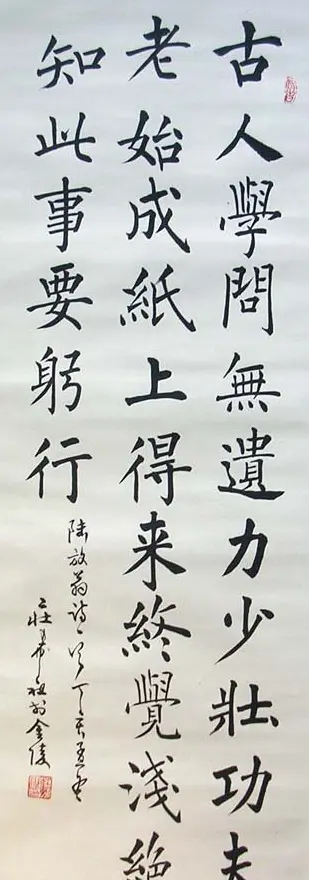 古人學問無遺力少壯功夫
老始成紙上得来終覺淺絕
知此事要躬行
陸放翁诗一首丁亥
於金陵